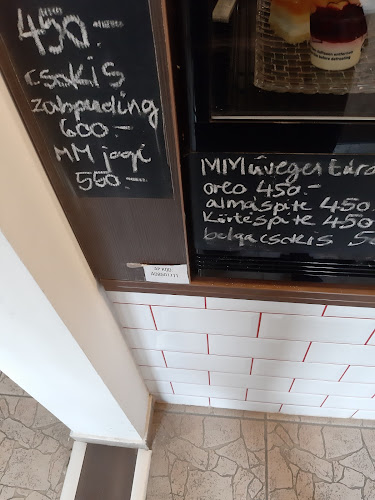 450.-
csokis
zabpuding
600.-
MM jogi
550.-
MM üveges túró
oreo 450.-
almáspite 450.
Körtéspite 450
belgacsokis
AP KÓD: